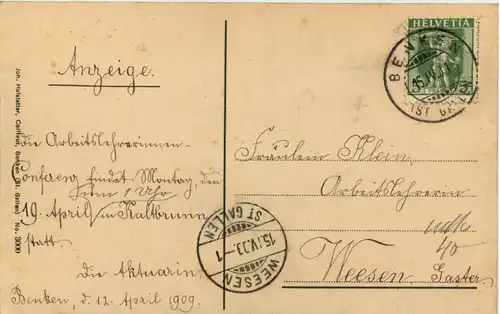 HELVETIA
BENKEN
15.IV.09
(ST. GALLEN)
Anzeige.
Joh. Hofstetter, Coiffeur, Benken (St. Gallen) No. 3000
Die Arbeitslehrerinnen-
Conferenz findet Montag, den
19. April 1 Uhr in Kaltbrunn
statt.
Die Aktuarin.
Benken, d. 12. April 1909.
Fräulein Klein,
Arbeitslehrerin
Weesen, Gaster.
ST. GALLEN
15.IV.09.-1
WEESEN